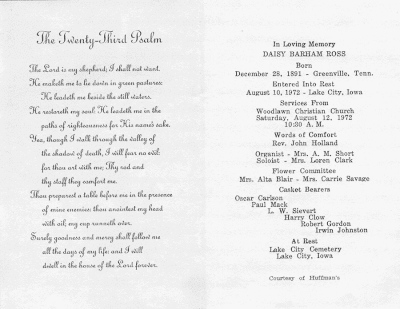 The Twenty-Third Psalm
The Lord is my shepherd; I shall not want.
He maketh me to lie down in green pastures:
He leadeth me beside the still waters.
He restoreth my soul: He leadeth me in the
paths of righteousness for His name's sake.
Yea, though I walk through the valley of
the shadow of death, I will fear no evil:
for thou art with me; Thy rod and
thy staff they comfort me.
Thou preparest a table before me in the presence
of mine enemies: thou anointest my head
with oil; my cup runneth over.
Surely goodness and mercy shall follow me
all the days of my life: and I will
dwell in the house of the Lord forever.
In Loving Memory
DAISY BARHAM ROSS
Born
December 28, 1891 - Greenville, Tenn.
Entered Into Rest
August 10, 1972 - Lake City, Iowa
Services From
Woodlawn Christian Church
Saturday, August 12, 1972
10:30 A. M.
Words of Comfort
Rev. John Holland
Organist - Mrs. A. M. Short
Soloist - Mrs. Loren Clark
Flower Committee
Mrs. Alta Blair - Mrs. Carrie Savage
Casket Bearers
Oscar Carlson
Paul Mack
L. W. Sievert
Harry Glow
Robert Gordon
Irwin Johnston
At Rest
Lake City Cemetery
Lake City, Iowa
Courtesy of Huffman's